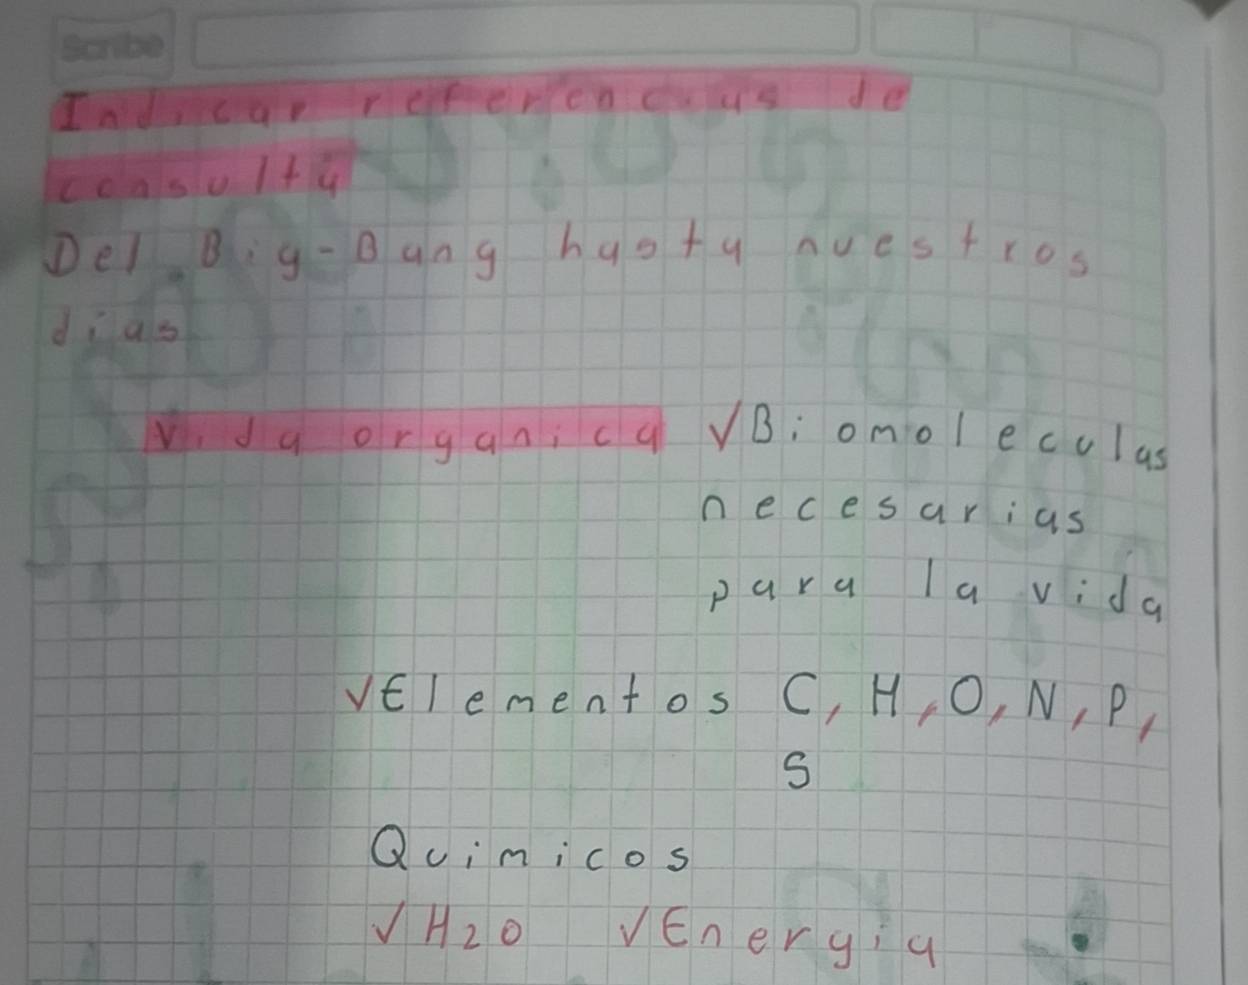 Scribe
Indicar referencias de
consulta
Del Big-Bang hasta nuestros
dias
Vida organica √Biomoleculas
necesarias
para la vida
√Elementos C, H, O, N, P,
S
Quimicos
√H2O √Energia